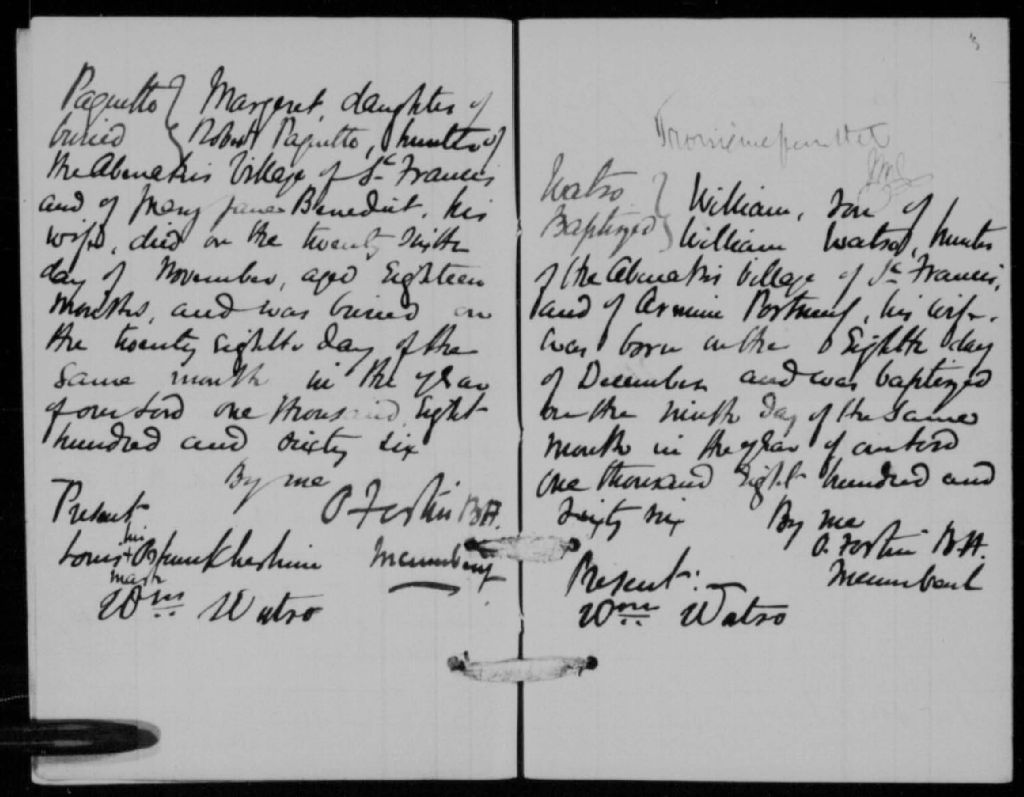 Paquette } Margaret, daughter of
buried } Robert Paquette, hunter of
the Abenakis Village of St. Francis
and of Mary Jane Benedict, his
wife, died on the twenty sixth
day of November, aged Eighteen
months, and was buried on
the twenty eighth day of the
same month in the year
of our Lord one thousand Eight
hundred and sixty six
By me
O Fortin B.A.
Present
his
Louis +
mark
Incumbent
Wm Watso
3
Watso } William, son of
Baptized } William Watso, hunter
of the Abenakis Village of St. Francis,
and of Armine Portneuf, his wife,
was born on the Eighth day
of December and was baptized
on the ninth day of the same
month in the year of our Lord
one thousand Eight hundred and
sixty six
By me
O. Fortin B.A.
Incumbent
Present:
Wm Watso